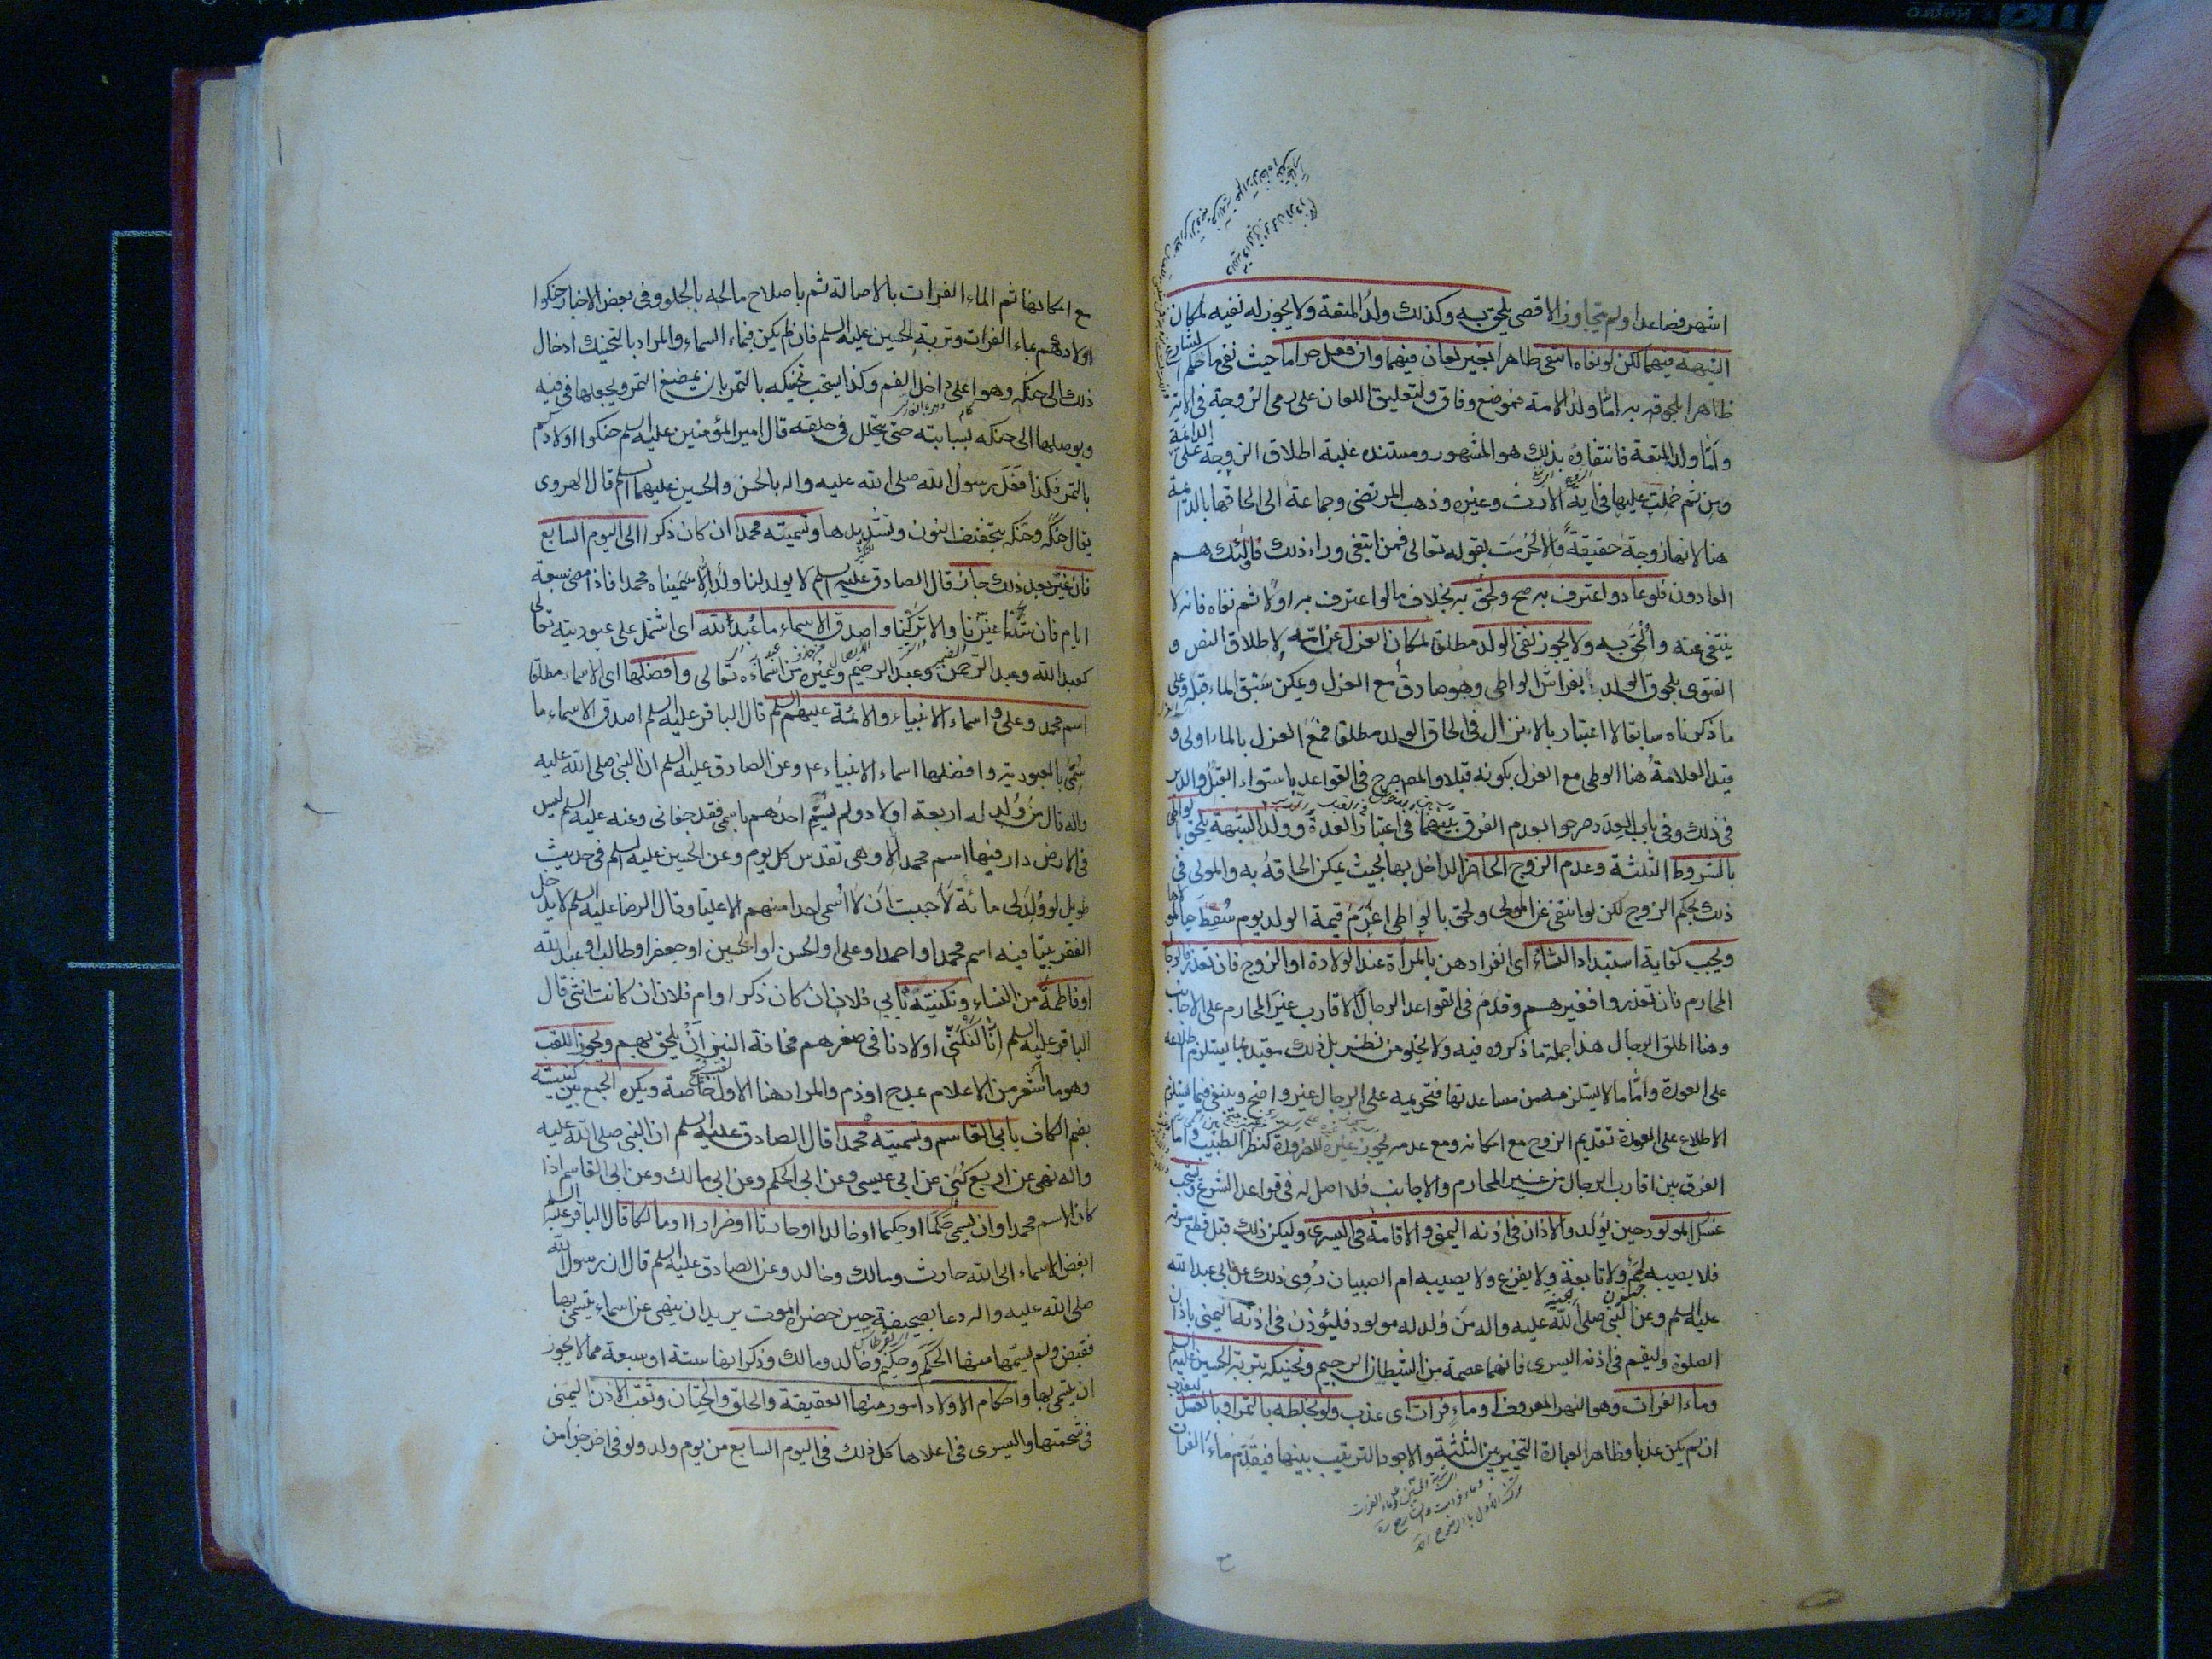 اشهر فصاعدا ولم يتجاوز الاقصى يلحق به وكذلك ولد المتعة ولا يجوز له نفيه لمكان
الشبهة فيهما لكن لو نفاه انتفى ظاهرا بغير لعان فيهما وان فعل حراما حيث نفى ما حكم الشارع
ظاهرا بلحوقه به امّا ولد الامة فموضع وفاق ولتعليق اللعان على رمى الزوجة فى الاية
وأمّا ولد المتعة فانتفاؤه بذلك هو المشهور ومستنده غلبة اطلاق الزوجة على الدائمة
ومن ثم حُملت عليها فى اية الارث وغيره وذهب المرتضى وجماعة الى الحاقها بالدائمة
هنا لانها زوجة حقيقةً والا لحرمت بقوله تعالى فمن ابتغى وراء ذلك فاولئك هم
العادون فلو عاد واعترف به صح ولحق به بخلاف ما لو اعترف به اولا ثم نفاه فانه لا
ينتفى عنه وأُلحق به ولا يجوز نفى الولد مطلقا لمكان العزل عن امّه لاطلاق النص و
الفتوى بلحوق الولد بفراش الواطى وهو صادق مع العزل ويمكن سَبْق الماء قبله وعلى
ما ذكرناه سابقا لا اعتبار بالانزال فى الحاق الولد مطلقا فمع العزل بالماء اولى و
قيد العلامة هنا الوطى مع العزل بكونه قبلا والمصرح فى القواعد باستواء القبل والدبر
فى ذلك وفى باب العِدَد صرحوا بعدم الفرق بينهما فى اعتبار العدة وولد الشبهة يلحق بالواطى
بالشروط الثلثة وعدم الزوج الحاضر الداخل بها بحيث يمكن الحاقه به والمولى فى
ذلك بحكم الزوج لكن لو انتفى عن المولى ولحق بالواطى اغرم قيمة الولد يوم سُقِطَ حيا لمولاها
ويجب كفاية استبداد النساء اى انفرادهن بالمرأة عند الولادة او الزوج فان تعذر فالرجال
المحارم فان تعذروا فغيرهم وقدم فى القواعد الرجال الاقارب غير المحارم على الاجانب
وهنا اطلق الرجال هذا جملة ما ذكروه فيه ولا يخلو من نظر بل ذلك مقيد بما يستلزم اطلاعه
على العورة وامّا ما لا يستلزمه من مساعدتها فتحريمه على الرجال غير واضح وينبغى فيما يستلزم
الاطلاع على العورة تقديم الزوج مع امكانه ومع عدمه يجوز غيره للضرورة كنظر الطبيب وامّا
الفرق بين اقارب الرجال من غير المحارم والاجانب فلا اصل له فى قواعد الشرع ويستحب
غسل المولود حين يولد والاذان فى اذنه اليمنى والاقامة فى اليسرى وليكن ذلك قبل قطع سرته
فلا يصيبه لمم ولا تابعة ولا يفزع ولا يصيبه ام الصبيان رُوى ذلك عن ابى عبد الله
عليه السلم وعن النبى صلى الله عليه واله من وُلد له مولود فليؤذن فى اذنه اليمنى باذان
الصلوة وليقم فى اذنه اليسرى فانهما عصمة من الشيطان الرجيم وتحنيكه بتربة الحسين عليه السلم
وماء الفرات وهو النهر المعروف او ماءٍ فرات اى عذب ولو بخلطه بالتمر او بالعسل ليعذب
ان لم يكن عذبا وظاهر العبارة التخيير بين الثلثة والاجود الترتيب بينها فيقدّم ماء الفرات
مع امكانها ثم الماء الفرات بالاصالة ثم باصلاح مالحه بالحلو وفى بعض الاخبار حنكوا
اولادكم بماء الفرات وتربة الحسين عليه السلم فان لم يكن فبماء السماء والمراد بالتحنيك ادخال
ذلك الى حنكه وهو اعلى داخل الفم وكذا يستحب تحنيكه بالتمر بان يمضغ التمر ويجعلها فى فيه
ويوصلها الى حنكه بسبابته حتى يتحلل فى حلقه قال امير المؤمنين عليه السلم حنكوا اولادكم
بالتمر فكذا فعل رسول الله صلى الله عليه واله بالحسن والحسين عليهما السلم قال الهروى
يقال حنكه وحنّكه بتخفيف النون وتشديدها وتسميته محمدا ان كان ذكرا الى اليوم السابع
فان غيّر بعد ذلك جاز قال الصادق عليه السلم لا يولد لنا ولد الا سمّيناه محمدا فاذا مضى سبعة
ايام فان شئنا غيّرنا والا تركنا واصدق الاسماء ما عُبد لله اى اشتمل على عبوديته تعالى
كعبد الله وعبد الرحمن وعبد الرحيم وغيره من اسمائه تعالى وافضلها اى الاسماء مطلقا
اسم محمد وعلى واسماء الانبياء والائمة عليهم السلم قال الباقر عليه السلم اصدق الاسماء ما
سُمّى بالعبودية وافضلها اسماء الانبياء ع وعن الصادق عليه السلم ان النبى صلى الله عليه
واله قال من وُلد له اربعة اولاد ولم يُسَمّ احدهم باسمى فقد جفانى وعنه عليه السلم ليس
فى الارض دار فيها اسم محمد الا وهى تقدس كل يوم وعن الحسين عليه السلم فى حديث
طويل لو وُلد لى مائة لأحببت ان لا اسمى احدا منهم الا عليا وقال الرضا عليه السلم لا يدخل
الفقر بيتا فيه اسم محمد او احمد او على او الحسن او الحسين او جعفر او طالب او عبد الله
او فاطمة من النساء وتكنيته بأبى فلان ان كان ذكرا او ام فلان ان كانت انثى قال
الباقر عليه السلم انّا لنكنّى اولادنا فى صغرهم مخافة النبز أن يلحق بهم ويجوز اللقب
وهو ما اشعر من الاعلام بمدح او ذم والمراد هنا الاول خاصة ويكره الجمع بين كنيته
بضم الكاف بابى القاسم وتسميته محمدا قال الصادق عليه السلم ان النبى صلى الله عليه
واله نهى عن اربع كُنى عن ابى عيسى وعن ابى الحكم وعن ابى مالك وعن ابى القاسم اذا
كان الاسم محمدا وان يسمى حكما او حكيما او خالدا او حارثا او ضرارا او مالكا قال الباقر عليه السلم
ابغض الاسماء الى الله حارث ومالك وخالد وعن الصادق عليه السلم قال ان رسول الله
صلى الله عليه واله دعا بصحيفة حين حضره الموت يريد ان ينهى عن اسماء يتسمى بها
فقبض ولم يسمّها منها الحَكَم وحكيم وخالد ومالك وذكر انها ستة او سبعة مما لا يجوز
ان يتسمى بها واحكام الاولاد امور منها العقيقة والحلق والختان وثقب الاذن اليمنى
فى شحمتها واليسرى فى اعلاها كل ذلك فى اليوم السابع من يوم ولد ولو فى اخر جزء من